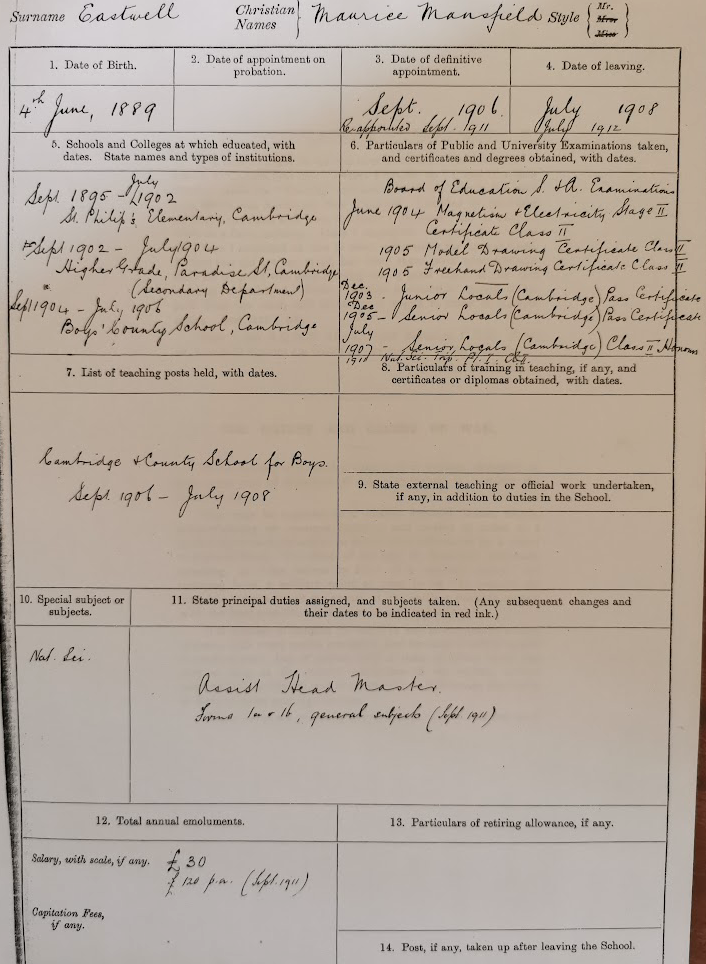 Surname Eastwell Christian Names } Maurice Mansfield Style { Mr. Mrs. Miss }
1. Date of Birth.
2. Date of appointment on probation.
3. Date of definitive appointment.
4. Date of leaving.
4th June, 1889
Sept. 1906
Re-appointed Sept. 1911
July 1908
July 1912
5. Schools and Colleges at which educated, with
dates. State names and types of institutions.
Sept. 1895 - July 1902
St. Philip's Elementary, Cambridge
Sept 1902 - July 1904
Higher Grade, Paradise St, Cambridge
(Secondary Department)
Sept 1904 - July 1906
Boys' County School, Cambridge
6. Particulars of Public and University Examinations taken,
and certificates and degrees obtained, with dates.
Board of Education S. & A. Examinations
June 1904 Magnetism & Electricity Stage II
Certificate Class II
1905 Model Drawing Certificate Class II
1905 Freehand Drawing Certificate Class II
Dec.
1903 - Junior Locals (Cambridge) Pass Certificate
Dec
1905 - Senior Locals (Cambridge) Pass Certificate
July
1907 - Senior Locals (Cambridge) Class II Honours
1910 Nat. Sci. Trip. Pt. I.
7. List of teaching posts held, with dates.
Cambridge & County School for Boys.
Sept 1906 - July 1908
8. Particulars of training in teaching, if any, and
certificates or diplomas obtained, with dates.
9. State external teaching or official work undertaken,
if any, in addition to duties in the School.
10. Special subject or
subjects.
Nat. Sci.
11. State principal duties assigned, and subjects taken. (Any subsequent changes and
their dates to be indicated in red ink.)
Assist Head Master.
Forms 1a & 1b, general subjects (Sept. 1911)
12. Total annual emoluments.
Salary, with scale, if any. £30
£120 p.a. (Sept. 1911)
Capitation Fees,
if any.
13. Particulars of retiring allowance, if any.
14. Post, if any, taken up after leaving the School.